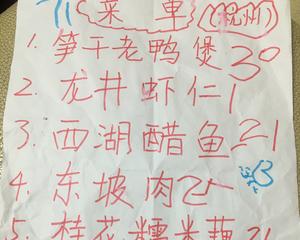 菜单 (杭州)
1. 笋干老鸭煲 30
2. 龙井虾仁 1
3. 西湖醋鱼 21
4. 东坡肉
5. 桂花糯米藕 21